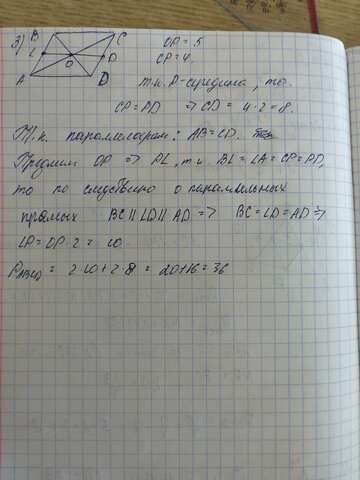 3) B C L P O A D
OP = 5
CP = 4.
т.к. P-середина, то
CP = PD => CD = 4·2 = 8.
Т.к. параллелограм: AB = CD.
Продлим OP => PL, т.к. BL = LA = CP = PD,
то по следствию о параллельных
прямых BC || LD || AD => BC = LD = AD =>
LP = OP·2 = 10
PABCD = 2·10 + 2·8 = 20+16 = 36